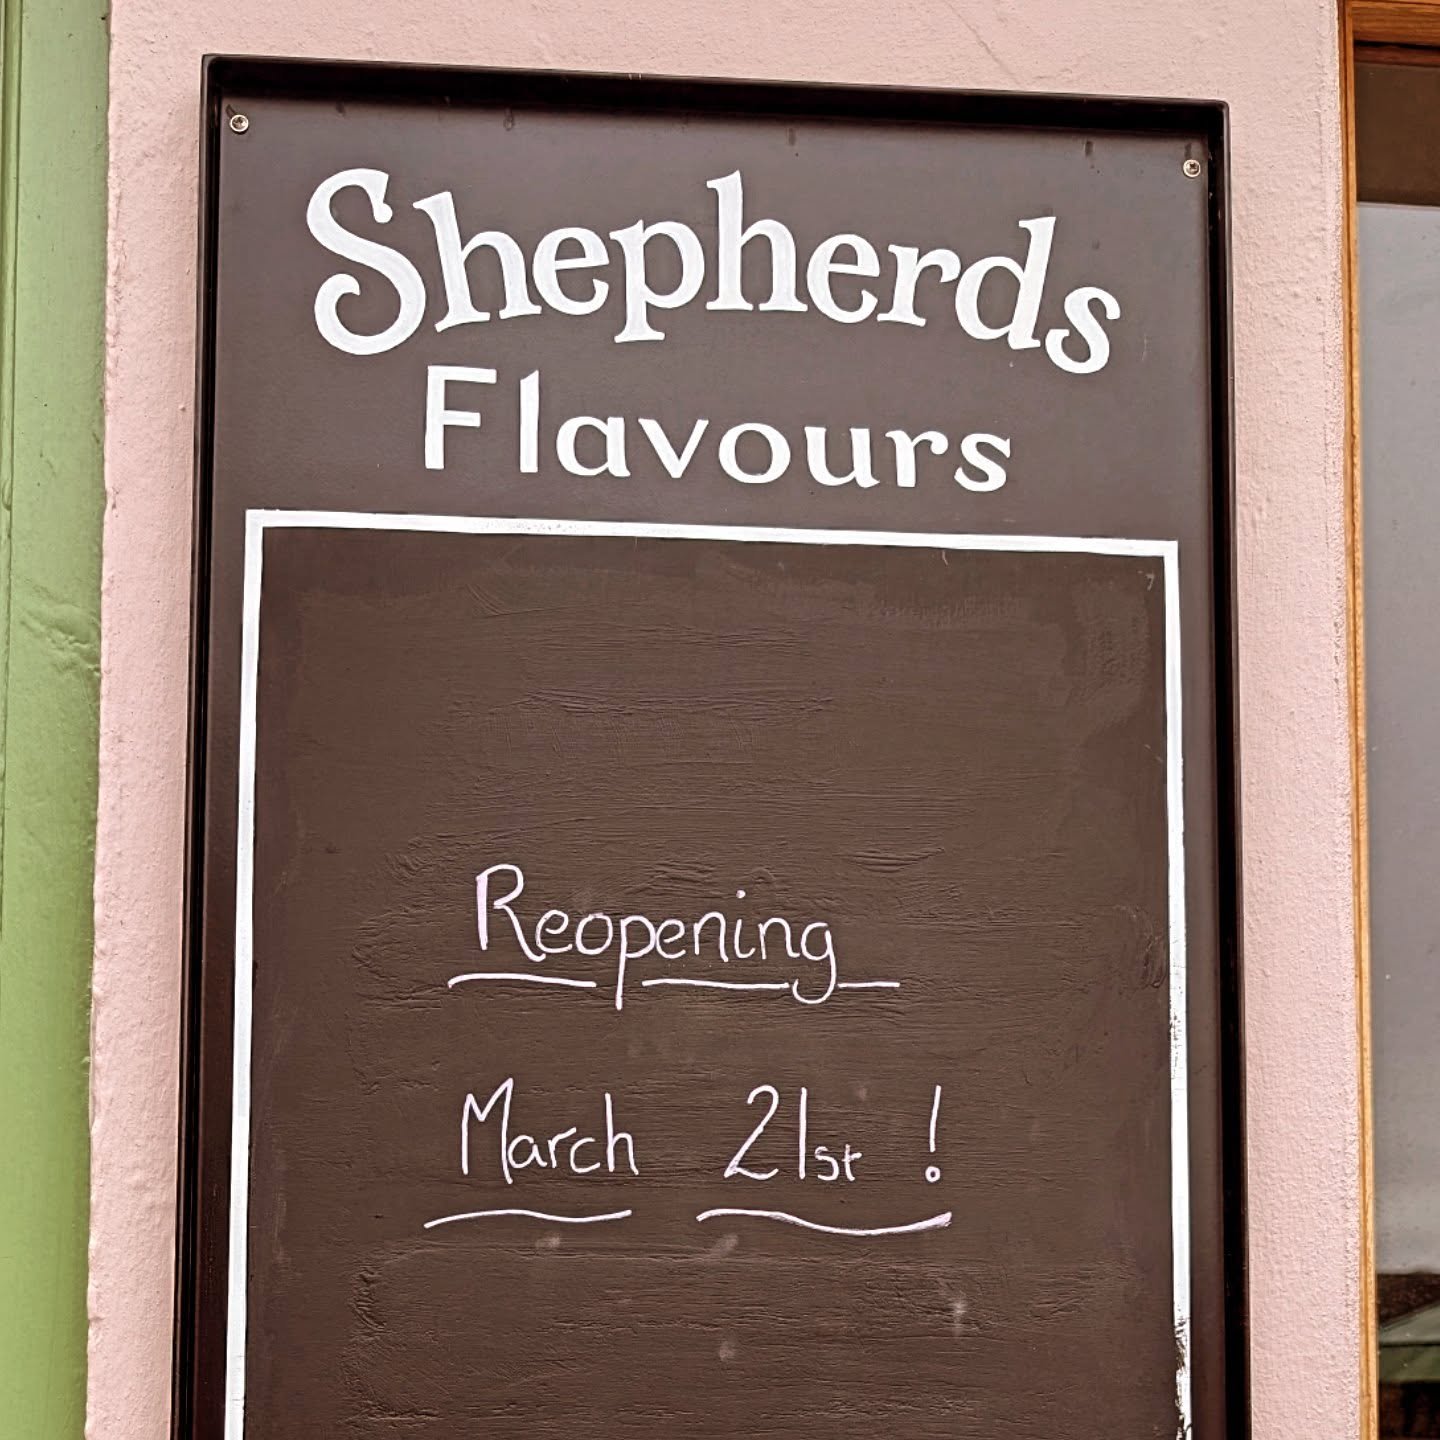 Shepherds
Flavours
Reopening
March 21st !